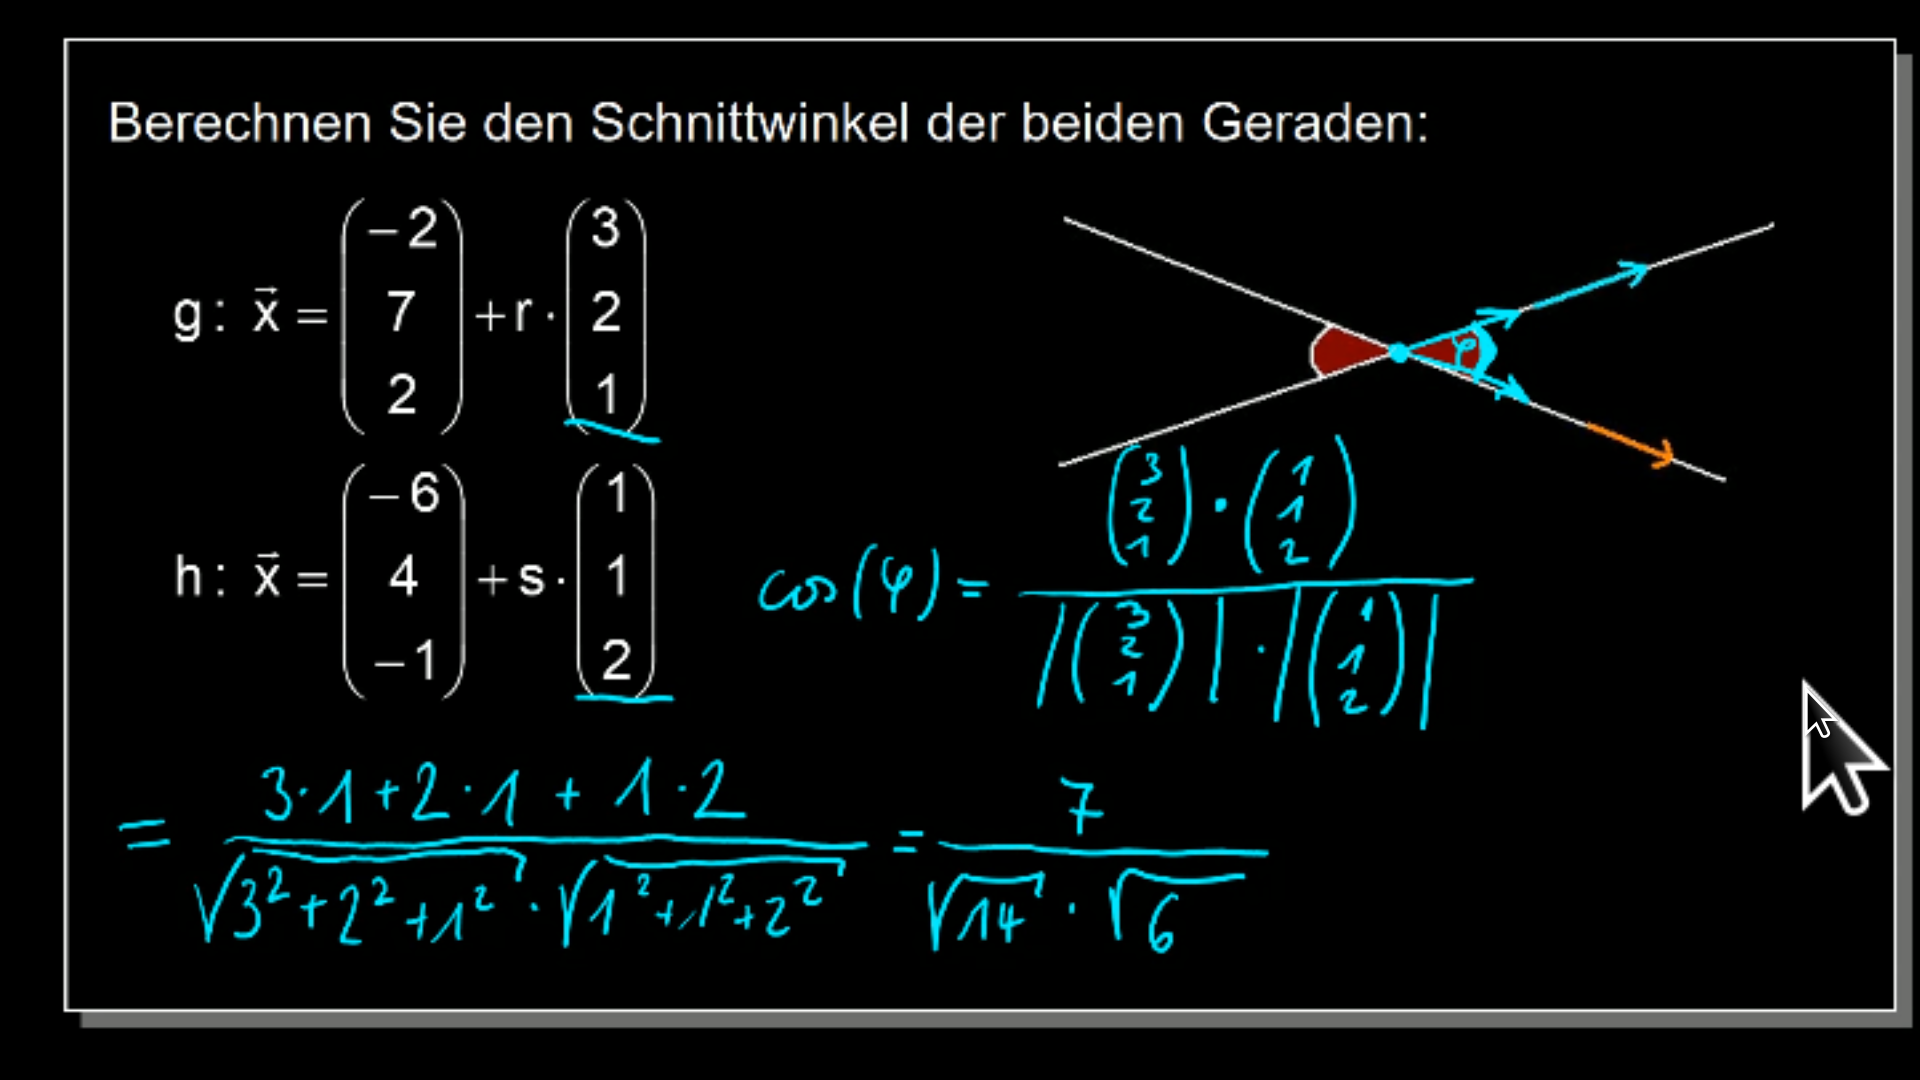 Berechnen Sie den Schnittwinkel der beiden Geraden:
g: x⃗ = (−2 7 2) + r · (3 2 1)
φ
h: x⃗ = (−6 4 −1) + s · (1 1 2)
cos(φ) = (3 2 1) · (1 1 2)
|(3 2 1)| · |(1 1 2)|
= 3·1+2·1 + 1·2 = 7
√3²+2²+1² · √1²+1²+2² √14 · √6